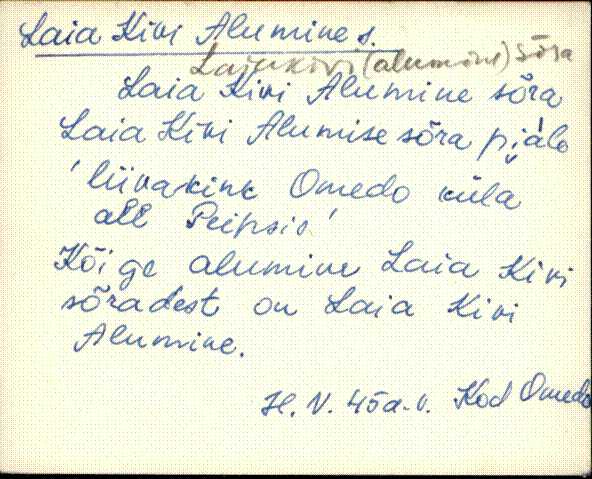 Laia Kivi Alumine s.
Laiakivi (alumine) sõra
Laia Kivi Alumine sõra
Laia Kivi Alumise sõra piäle
'liivakink Omedo küla
all Peipsis'
Kõige alumine Laia Kivi
sõradest on Laia Kivi
Alumine.
H. V. 45a. v. Kod Omedo